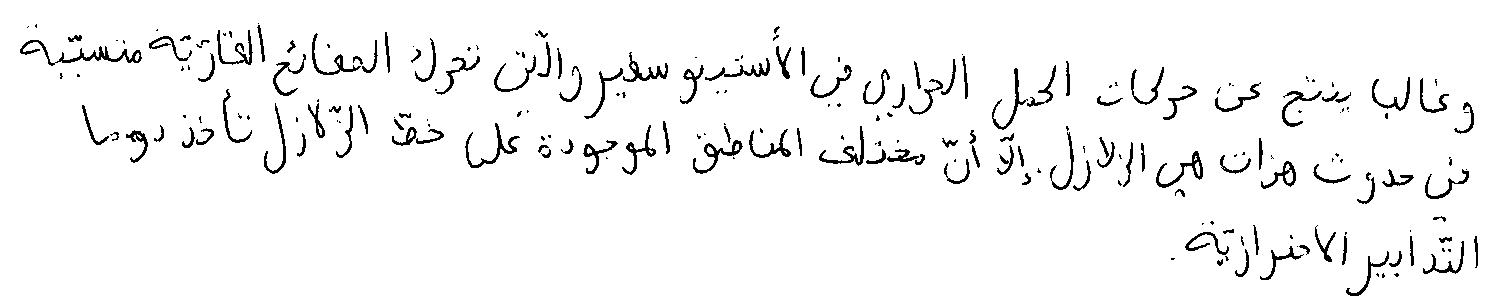 وغالبا ينتج عن حركات الحمل الحراري في الأستينوسفير والّتي تحرك الصفائح القارّيّة متسبّبة
في حدوث هزات هي الزلازل. إلّا أنّ مختلف المناطق الموجودة على خطّ الزّلازل تأخذ دوما
التّدابير الاحترازيّة.